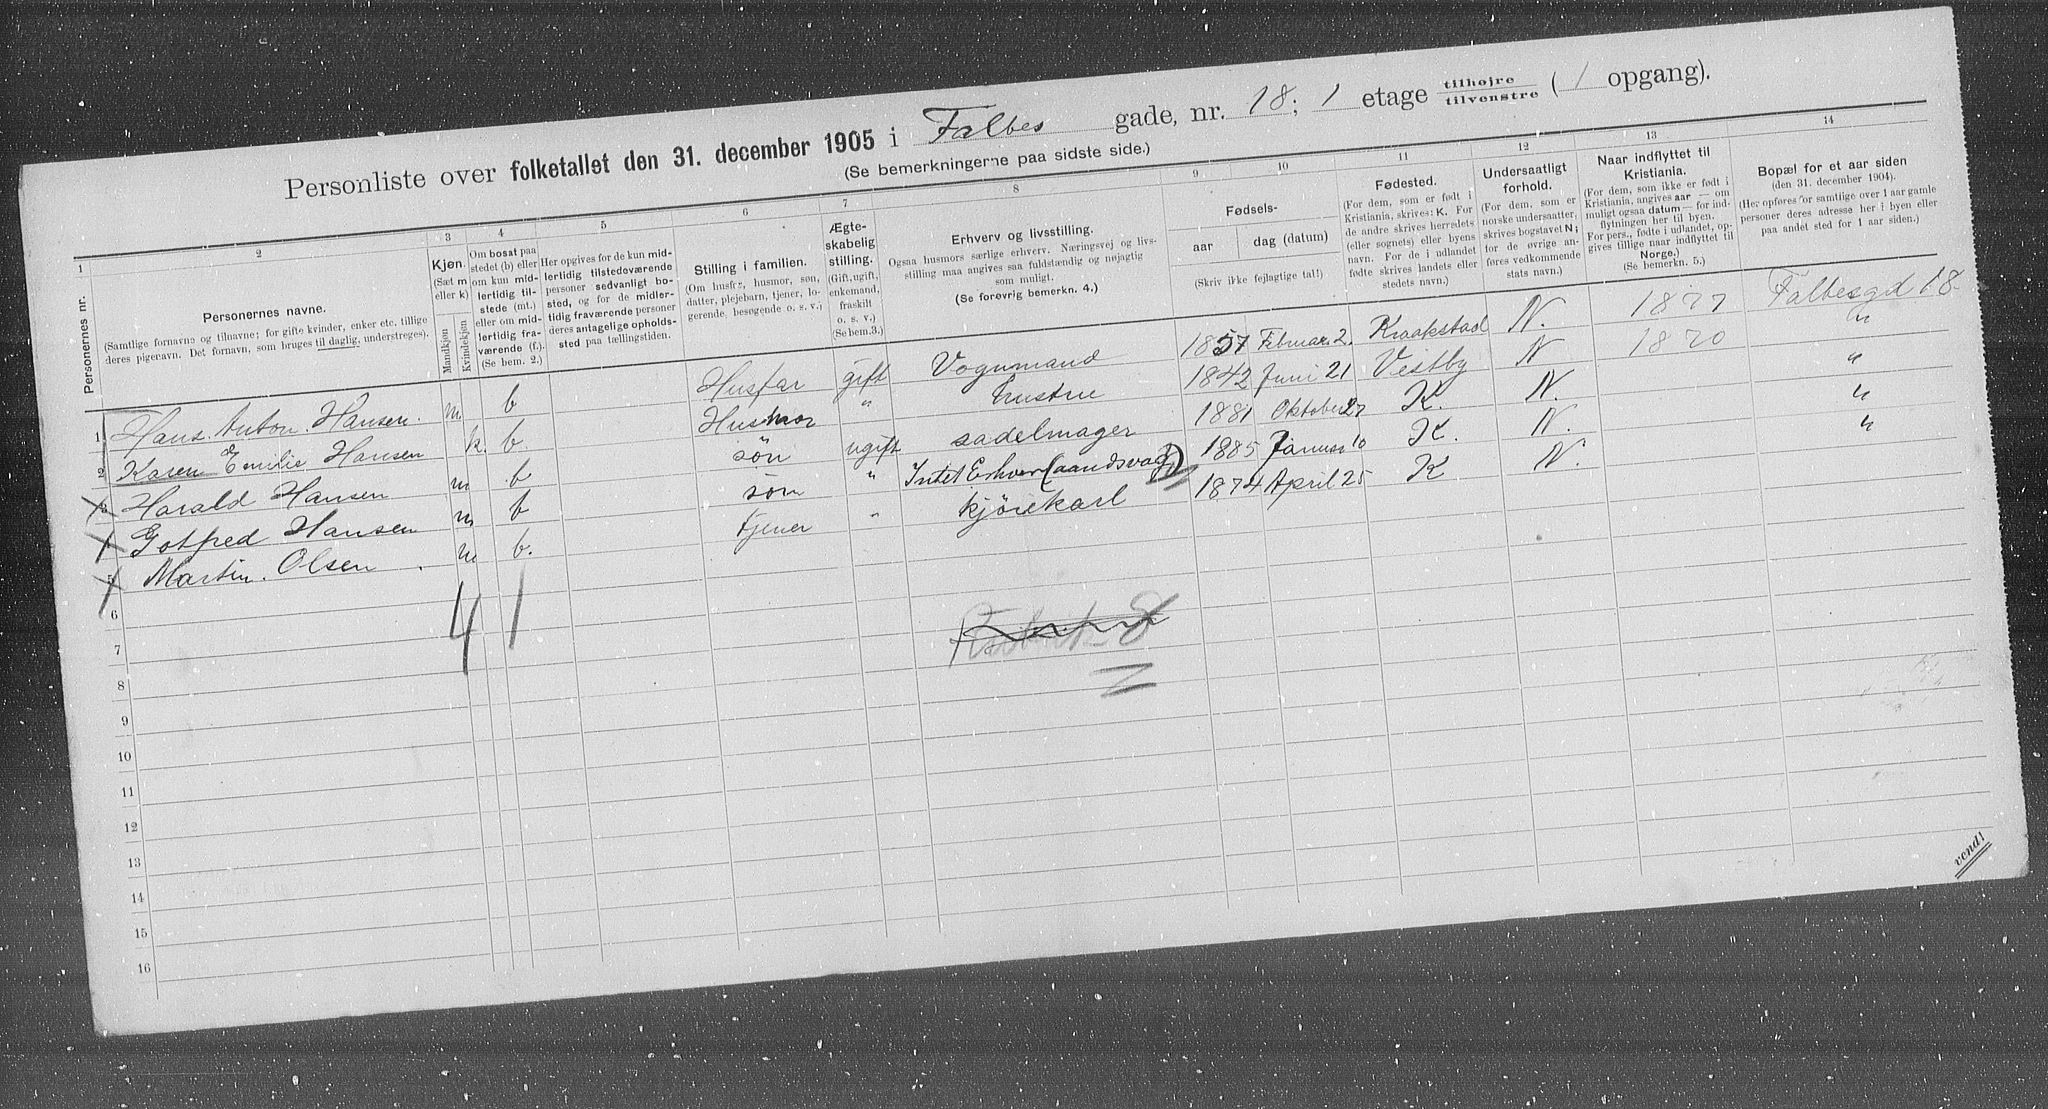 Personliste over folketallet den 31. december 1905 i Falbes gade, nr. 18; 1 etage tilhøjre tilvenstre ( 1 opgang).
(Se bemerkningerne paa sidste side.)
1 2 3 4 5 6 7 8 9 10 11 12 13 14
Personernes nr.
Personernes navne.
(Samtlige fornavne og tilnavne; for gifte kvinder, enker etc. tillige
deres pigenavn. Det fornavn, som bruges til daglig, understreges).
Kjøn.
(Sæt m
eller k)
Mandkjøn
Kvindekjøn
Om bosat paa
stedet (b) eller
om kun mid-
lertidig til-
stede (mt.)
eller om mid-
lertidig fra-
værende (f.).
(Se bem. 2.)
Her opgives for de kun mid-
lertidig tilstedeværende
personer sedvanligt bo-
sted, og for de midler-
tidig fraværende personer
deres antagelige opholds-
sted paa tællingstiden.
Stilling i familien.
(Om husfar, husmor, søn,
datter, plejebarn, tjener, lo-
gerende, besøgende o. s. v.)
Ægte-
skabelig
stilling.
(Gift, ugift,
enkemand,
fraskilt
o. s. v.)
(Se bem.3.)
Erhverv og livsstilling.
Ogsaa husmors særlige erhverv. Næringsvej og livs-
stilling maa angives saa fuldstændig og nøjagtig
som muligt.
(Se forøvrig bemerkn. 4.)
Fødsels-
aar dag (datum)
(Skriv ikke fejlagtige tal!)
Fødested.
(For dem, som er født i
Kristiania, skrives: K. For
de andre skrives herredets
(eller sognets) eller byens
navn. For de i udlandet
fødte skrives landets eller
stedets navn.)
Undersaatligt
forhold.
(For dem, som er
norske undersaatter,
skrives bogstavet N;
for de øvrige an-
føres vedkommende
stats navn.)
Naar indflyttet til
Kristiania.
(For dem, som ikke er født i
Kristiania, angives aar — om
muligt ogsaa datum — for ind-
flytningen her til byen.
For pers., fødte i udlandet, op-
gives tillige naar indflyttet til
Norge.)
(Se bemerkn. 5.)
Bopæl for et aar siden
(den 31. december 1904).
(Her opføres for samtlige over 1 aar gamle
personer deres adresse her i byen eller
paa andet sted for 1 aar siden.)
1 Hans. Anton. Hansen. m. b Husfar gift Vognmand 1857 Februar. 2. Kraakstad N. 1877 Falbesgd 18
2 Karen Emilie Hansen k. b. Husmor " hustru 1842 Juni 21 Vestby N 1870 "
3 Harald Hansen m b søn ugift sadelmager 1881 Oktober 27 K. N. "
Gotfred Hansen m b søn " Intet Erhverv (aandsvag) 1885 Januar 10 K. N. "
5 Martin. Olsen. m b. tjener " kjørekarl 1874 April 25 K N. "
4 1
6
7
8
9
10
11
12
13
14
15
16
vend!